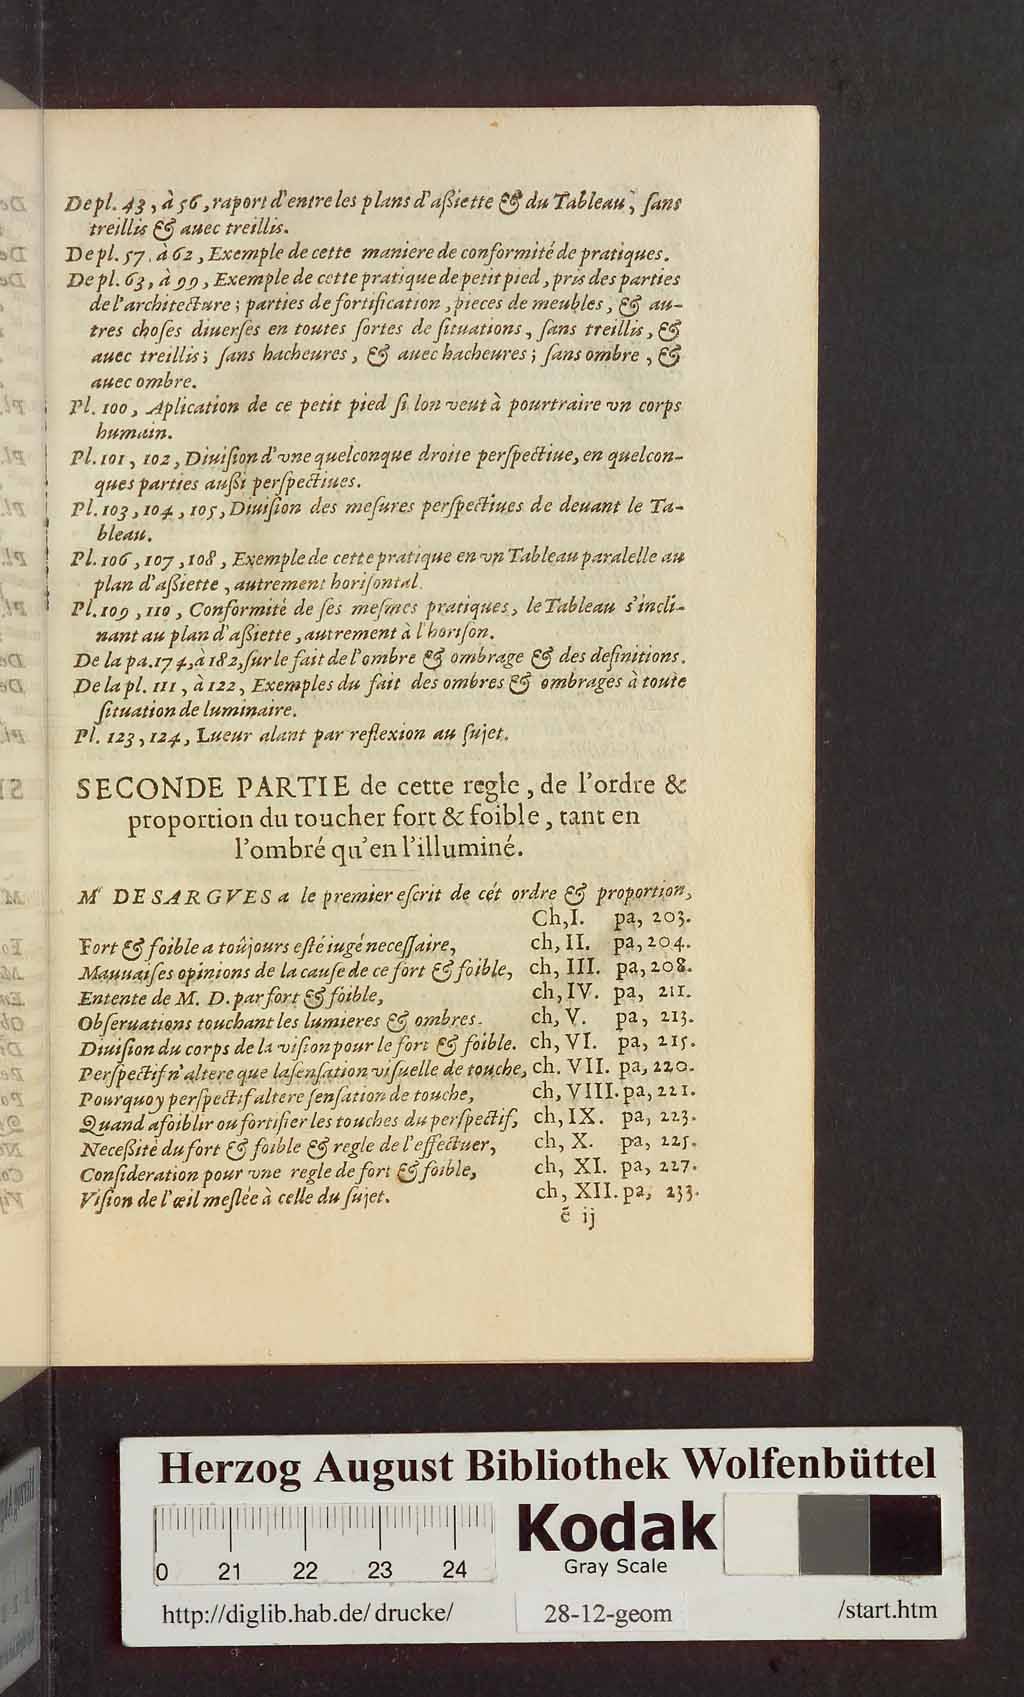 De pl. 43, à 56, raport d'entre les plans d'aßiette & du Tableau, ſans
treillis & auec treillis.
De pl. 57, à 62, Exemple de cette maniere de conformité de pratiques.
De pl. 63, à 99, Exemple de cette pratique de petit pied, pris des parties
de l'architecture; parties de fortification, pieces de meubles, & au-
tres choſes diuerſes en toutes ſortes de ſituations, ſans treillis, &
auec treillis; ſans hacheures, & auec hacheures; ſans ombre, &
auec ombre.
Pl. 100, Aplication de ce petit pied ſi lon veut à pourtraire vn corps
humain.
Pl. 101, 102, Diuiſion d'vne quelconque droite perſpectiue, en quelcon-
ques parties außi perſpectiues.
Pl. 103, 104, 105, Diuiſion des meſures perſpectiues de deuant le Ta-
bleau.
Pl. 106, 107, 108, Exemple de cette pratique en vn Tableau paralelle au
plan d'aßiette, autrement horiſontal.
Pl. 109, 110, Conformité de ſes meſmes pratiques, le Tableau s'incli-
nant au plan d'aßiette, autrement à l'horiſon.
De la pa. 174, à 182, ſur le fait de l'ombre & ombrage & des definitions.
De la pl. 111, à 122, Exemples du fait des ombres & ombrages à toute
ſituation de luminaire.
Pl. 123, 124, Lueur alant par reflexion au ſujet.
SECONDE PARTIE de cette regle, de l'ordre &
proportion du toucher fort & foible, tant en
l'ombré qu'en l'illuminé.
Mr DESARGVES a le premier eſcrit de cét ordre & proportion,
Ch, I. pa, 203.
Fort & foible a toûjours eſté iugé neceſſaire, ch, II. pa, 204.
Mauuaiſes opinions de la cauſe de ce fort & foible, ch, III. pa, 208.
Entente de M. D. par fort & foible, ch, IV. pa, 211.
Obſeruations touchant les lumieres & ombres. ch, V. pa, 213.
Diuiſion du corps de la viſion pour le fort & foible. ch, VI. pa, 215.
Perſpectif n'altere que la ſenſation viſuelle de touche, ch. VII. pa, 220.
Pourquoy perſpectif altere ſenſation de touche, ch, VIII. pa, 221.
Quand afoiblir ou fortifier les touches du perſpectif, ch, IX. pa, 223.
Neceßité du fort & foible & regle de l'effectuer, ch, X. pa, 225.
Conſideration pour vne regle de fort & foible, ch, XI. pa, 227.
Viſion de l'œil meſlée à celle du ſujet. ch, XII. pa, 233.
é ij
Herzog August Bibliothek Wolfenbüttel
0 21 22 23 24
Kodak
Gray Scale
http://diglib.hab.de/drucke/ 28-12-geom /start.htm